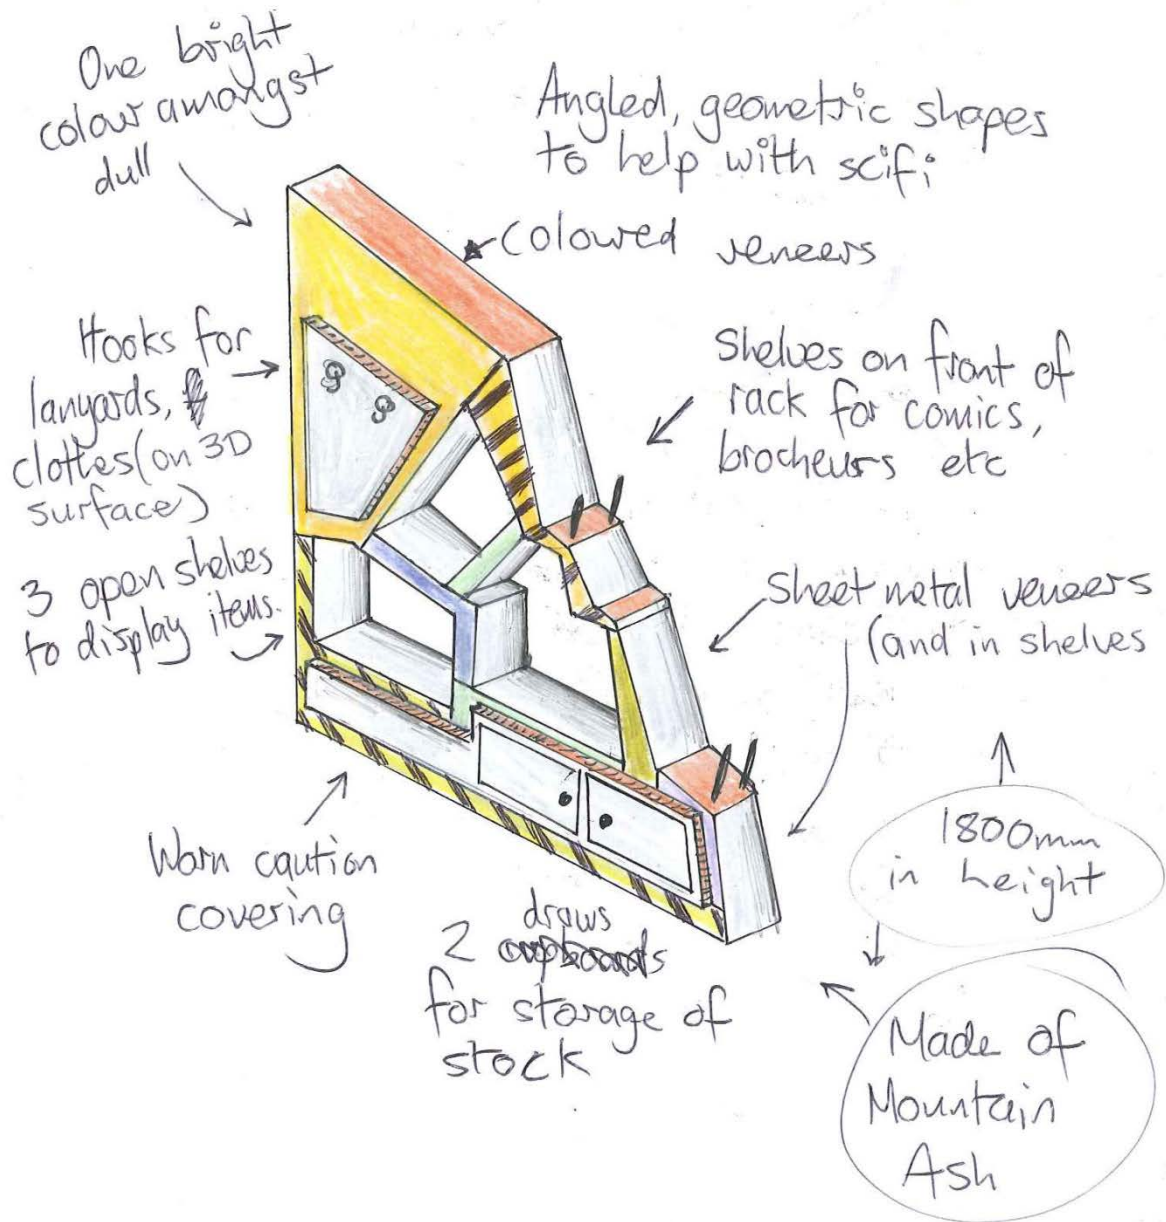 One bright
colour amongst
dull
Angled, geometric shapes
to help with scifi
coloured veneers
Hooks for
lanyards,
clothes (on 3D
surface)
Shelves on front of
rack for comics,
brocheurs etc
3 open shelves
to display items.
Sheet metal veneers
(and in shelves
Worn caution
covering
draws
2 cupboards
for storage of
stock
1800mm
in height
Made of
Mountain
Ash